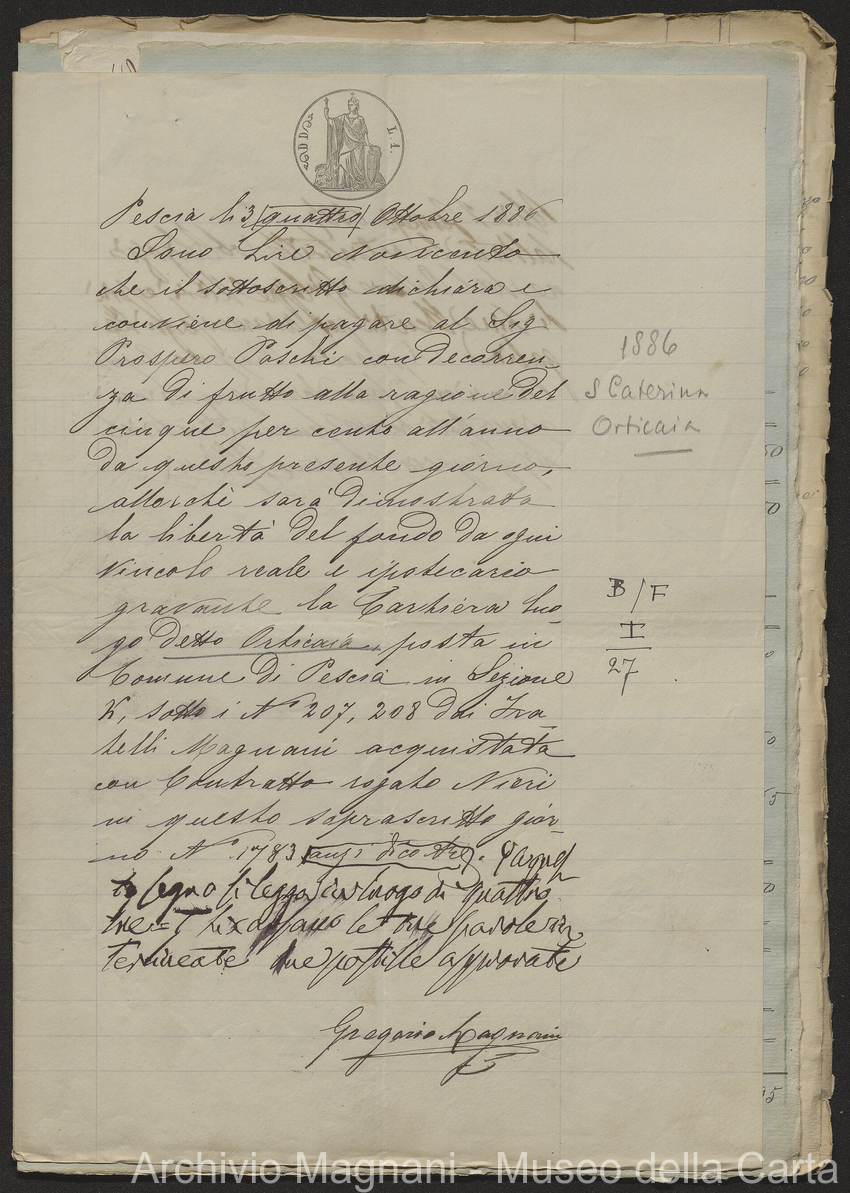 L. 1.
Pescia li 3 (quattro) Ottobre 1886
Sono Lire Novecento
che il sottoscritto dichiara e
conviene di pagare al Sig
Prospero Paschi con decorren
za di frutto alla ragione del
cinque per cento all'anno
da questo presente giorno,
allorchè sarà dimostrata
la libertà del fondo da ogni
vincolo reale e ipotecario
gravante la Cartiera luo
go detto Orticaia, posta in
Comune di Pescia in Sezione
K, sotto i Nⁱ 207, 208 dai Fra
telli Magnani acquistata
con Contratto rogato Nieri
in questo soprascritto gior
no Nº 1783 anzi dico tre).
segno si legga in luogo di quattro
tre = le tre parole in
terlineate due postille approvate
Gregorio Magnani
1886
S Caterina
Orticaia
B/F
I
27
Archivio Magnani - Museo della Carta